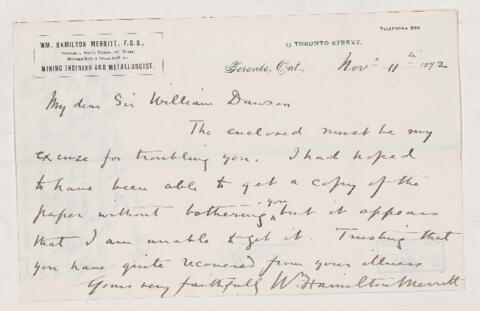 TELEPHONE
WM. HAMILTON MERRITT, F.G.S.,
MINING ENGINEER AND METALLURGIST.
TORONTO STREET,
Toronto, Ont., Nov. 11th 1892
My dear Sir William Dawson
The enclosed must be my
excuse for troubling you. I had hoped
to have been able to get a copy of the
paper without bothering you but it appears
that I am unable to get it. Trusting that
you have quite recovered from your illness
Yours very faithfully Wm Hamilton Merritt